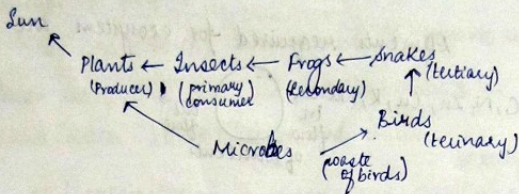 Sun
Plants ← Insects ← Frogs ← Snakes
(Producer) (primary consumer) (secondary) (tertiary)
Birds
(terinary)
Microbes
(waste of birds)